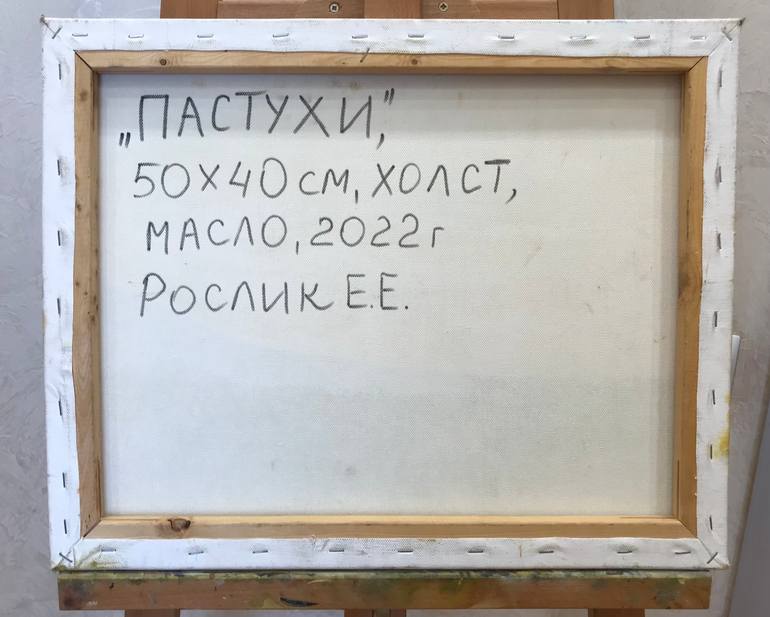 „ПАСТУХИ,"
50×40 см, ХОЛСТ,
МАСЛО, 2022 г
РОСЛИК Е.Е.